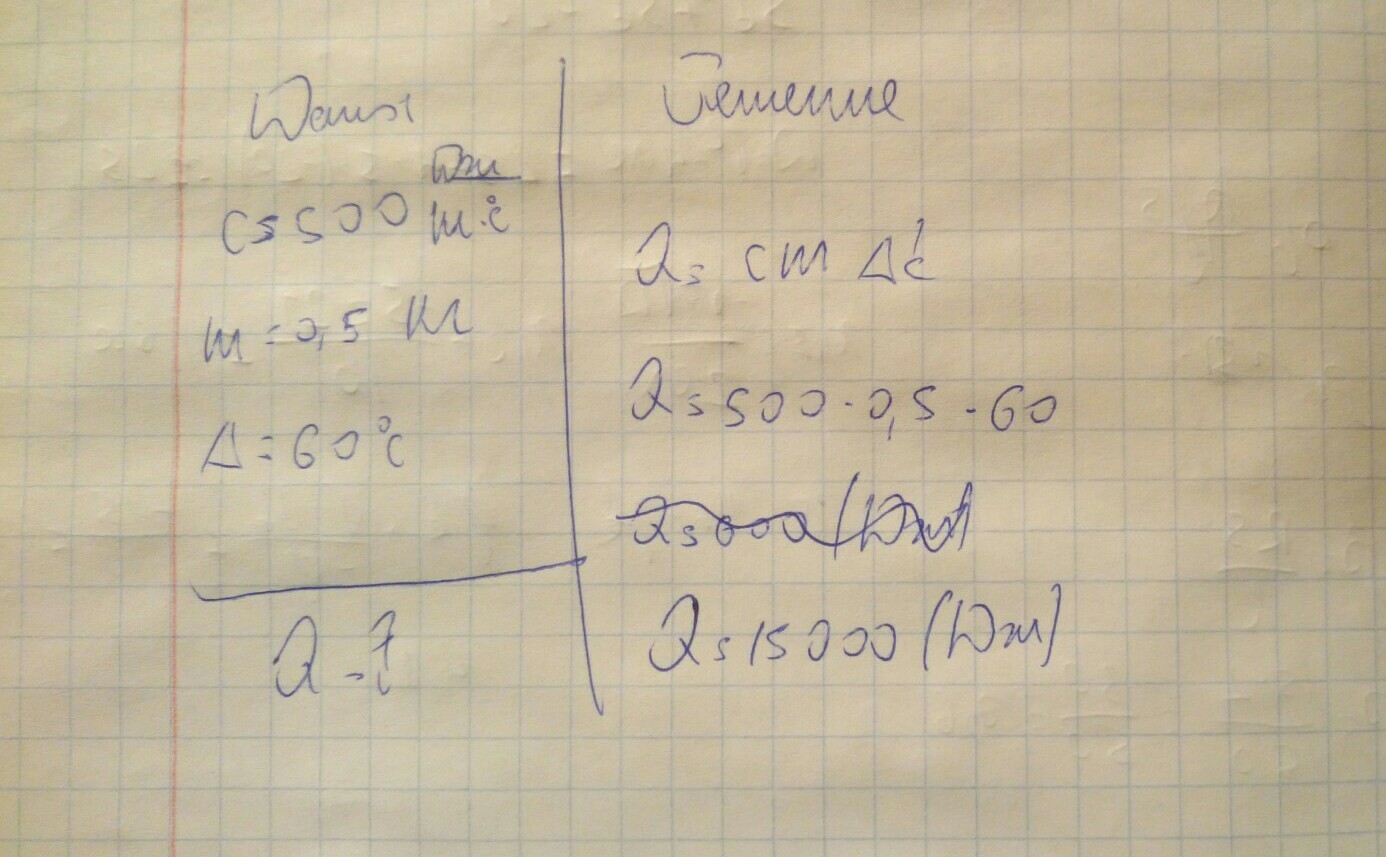 Дано:
c = 500 Дж/кг·°C
m = 0,5 кг
Δ = 60°C
Q - ?
Решение
Q = cm Δt
Q = 500 · 0,5 · 60
Q = 15000 (Дж)